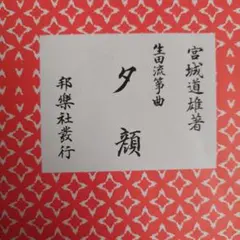 宮城道雄著
生田流箏曲
夕顔
邦樂社發行